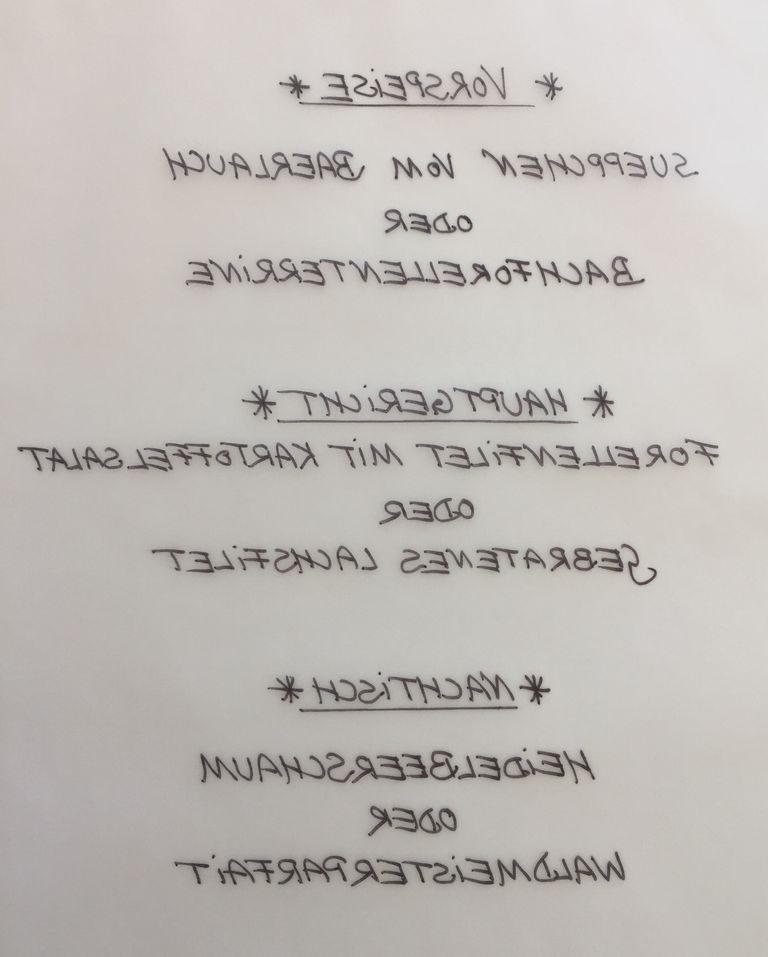 * VORSPEiSE *
SUEPPCHEN VOM BAERLAUCH
ODER
BACHFORELLENTERRiNE
* HAUPTGERiCHT *
FORELLENFiLET MiT KARTOFFELSALAT
ODER
GEBRATENES LACHSFiLET
* NACHTiSCH *
HEiDELBEERSCHAUM
ODER
WALDMEiSTERPARFAiT